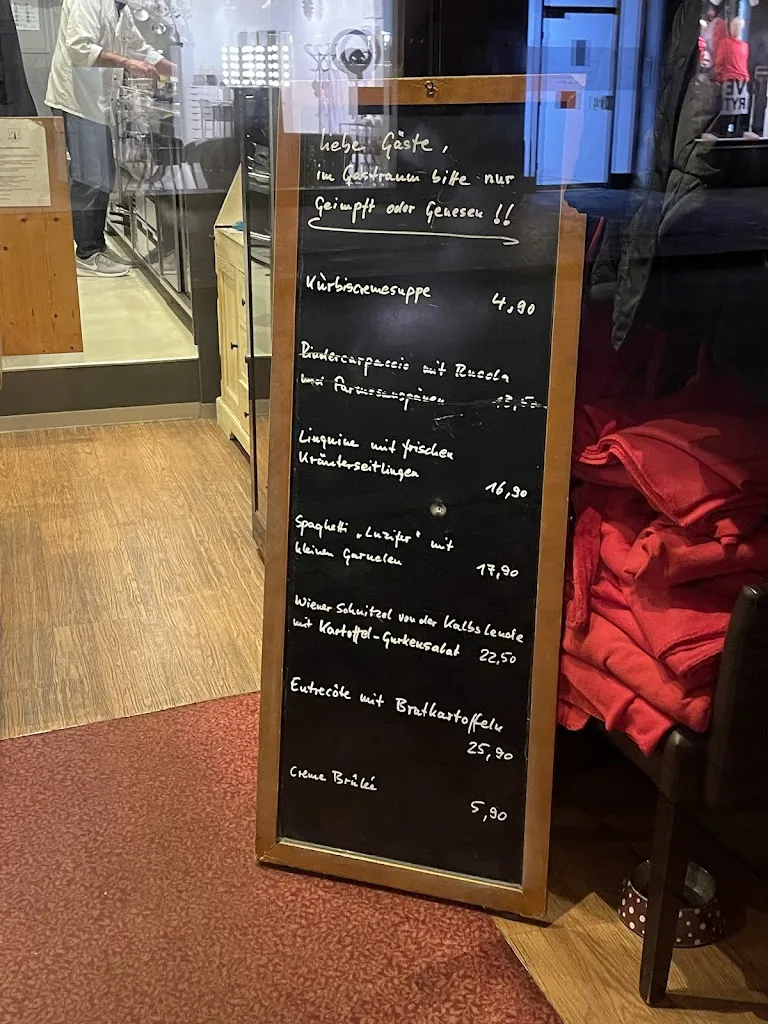 Liebe Gäste,
im Gastraum bitte nur
Geimpft oder Genesen !!
Kürbiscremesuppe
4,90
Rindercarpaccio mit Rucola
und Parmesanspänen 13,50
Linguine mit frischen
Kräuterseitlingen
16,90
Spaghetti „Luzifer" mit
kleinen Garnelen
17,90
Wiener Schnitzel von der Kalbslende
mit Kartoffel-Gurkensalat 22,50
Entrecôte mit Bratkartoffeln
25,90
Creme Brûlée
5,90